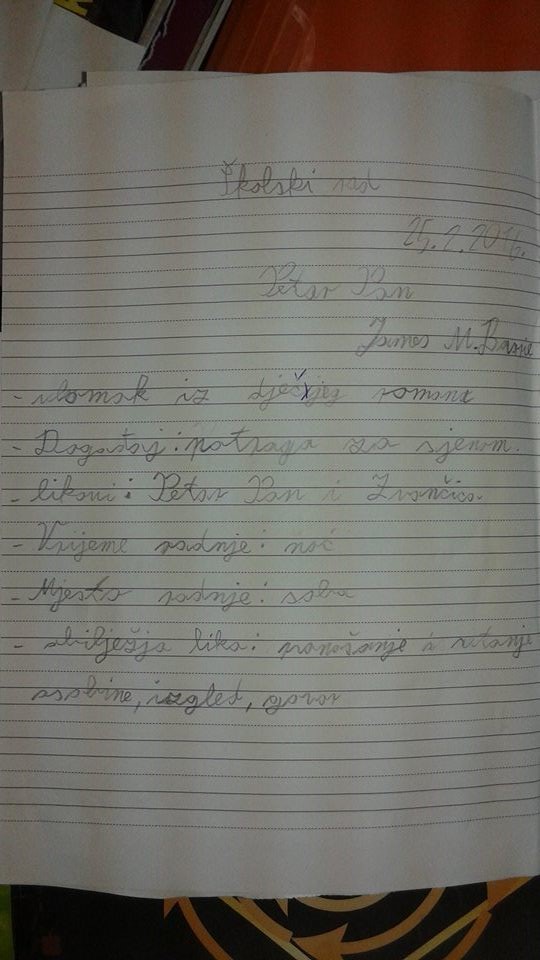 Školski rad
25.2.2016.
Petar Pan
James M. Barrie
- ulomak iz dječjeg romana
- Događaj: potraga za sjenom.
- likovi: Petar Pan i Zvončica
- Vrijeme radnje: noć
- Mjesto radnje: soba
- obilježja lika: ponašanje i
osobine, izgled, govor